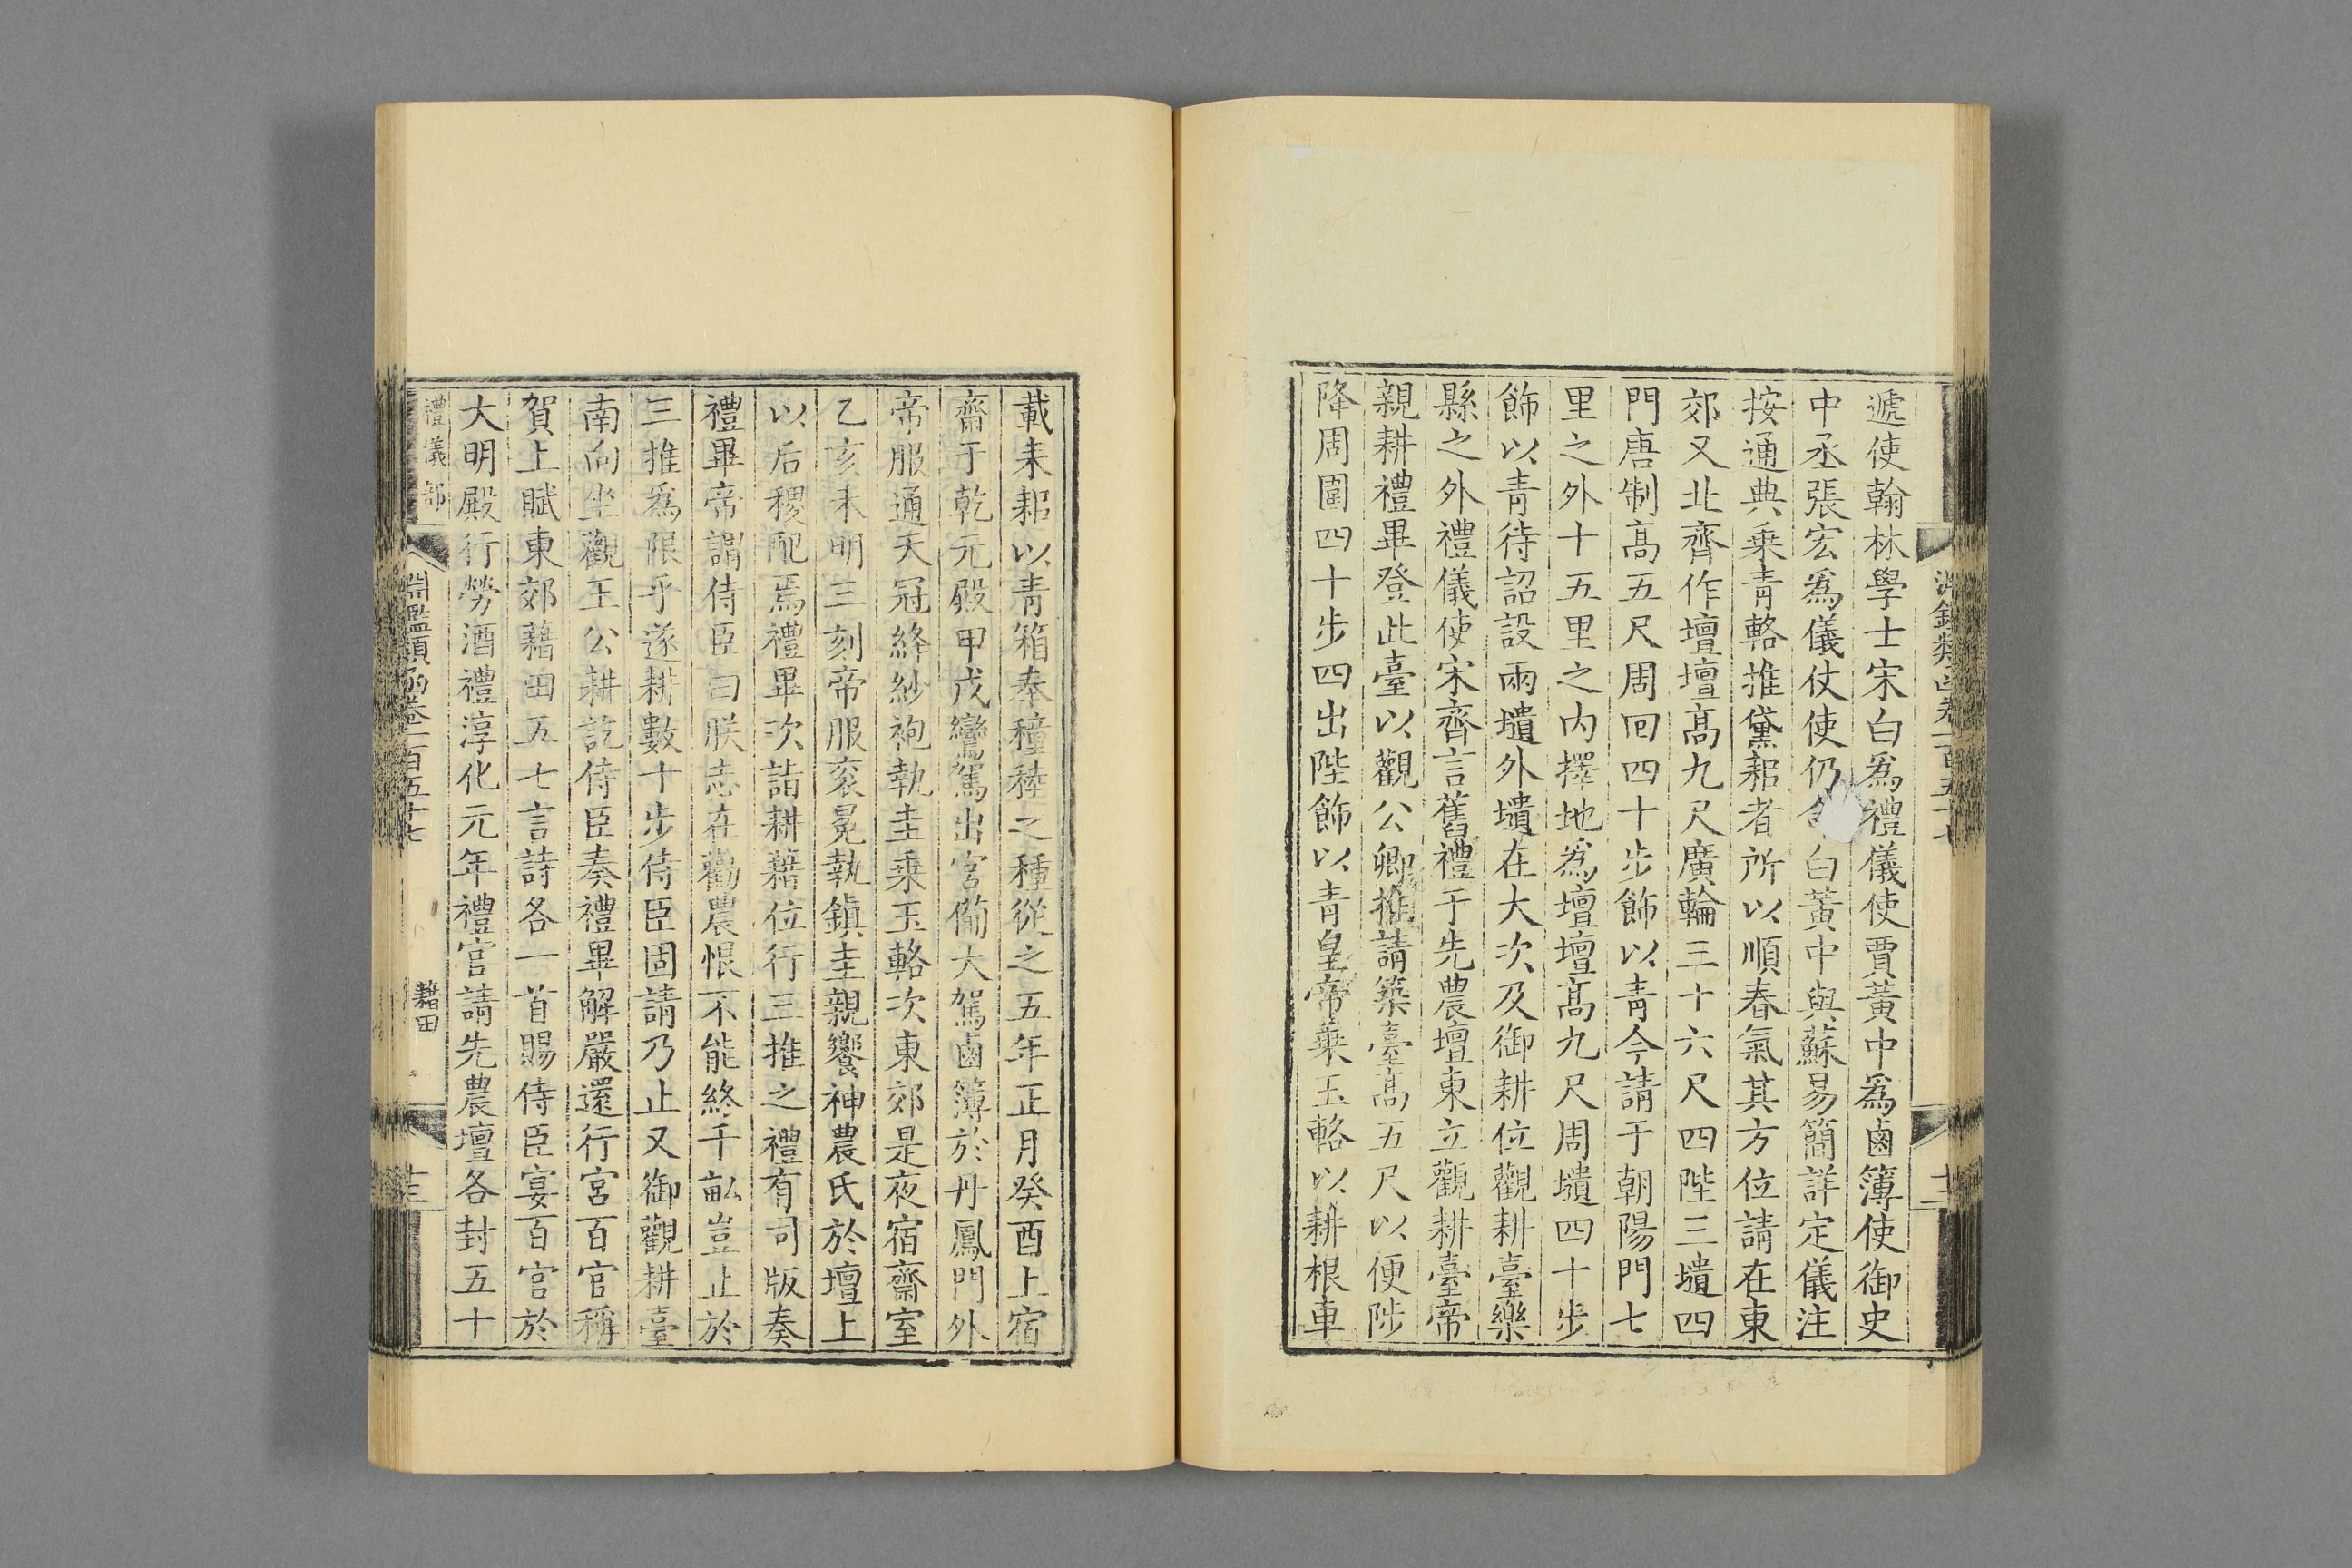 遞使翰林學士宋白爲禮儀使賈黃中爲鹵簿使御史
中丞張宏爲儀仗使仍白黃中與蘇易簡詳定儀注
按通典乗青輅推黛耜者所以順春氣其方位請在東
郊又北齊作壇壇髙九尺廣輪三十六尺四陛三壝四
門唐制髙五尺周回四十步飾以青今請于朝陽門七
里之外十五里之内擇地爲壇壇髙九尺周壝四十步
飾以青待詔設兩壝外壝在大次及御耕位觀耕臺樂
縣之外禮儀使宋齊言舊禮于先農壇東立觀耕臺帝
親耕禮畢登此臺以觀公卿推請築臺髙五尺以便陟
降周圍四十步四出陛飾以青皇帝乗玉輅以耕根車
載耒耜以青箱奉穜稑之種從之五年正月癸酉上宿
齋于乾元殿甲戌鸞駕出宮備大駕鹵簿於丹鳳門外
帝服通天冠絳紗袍執圭乗玉輅次東郊是夜宿齋室
乙亥未明三刻帝服衮冕執鎮圭親饗神農氏於壇上
以后稷配焉禮畢次詣耕藉位行三推之禮有司版奏
禮畢帝謂侍臣曰朕志在勸農恨不能終千畝豈止於
三推爲限乎遂耕數十步侍臣固請乃止又御觀耕臺
南向坐觀王公耕訖侍臣奏禮畢解嚴還行宮百官稱
賀上賦東郊藉田五七言詩各一首賜侍臣宴百官於
大明殿行勞酒禮淳化元年禮官請先農壇各封五十
禮儀部
淵鑑類函卷一百五十七
藉田
十三